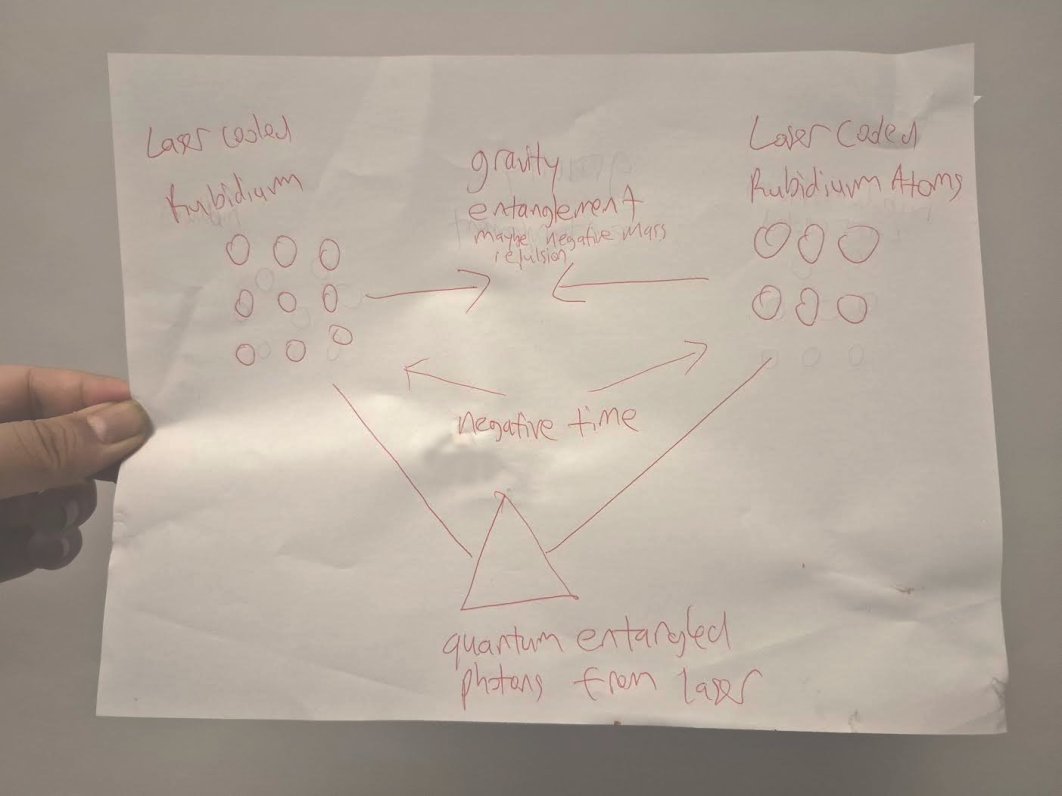 Laser cooled
Rubidium
gravity
entanglement
maybe negative mass
repulsion
Laser Cooled
Rubidium Atoms
negative time
quantum entangled
photons from laser